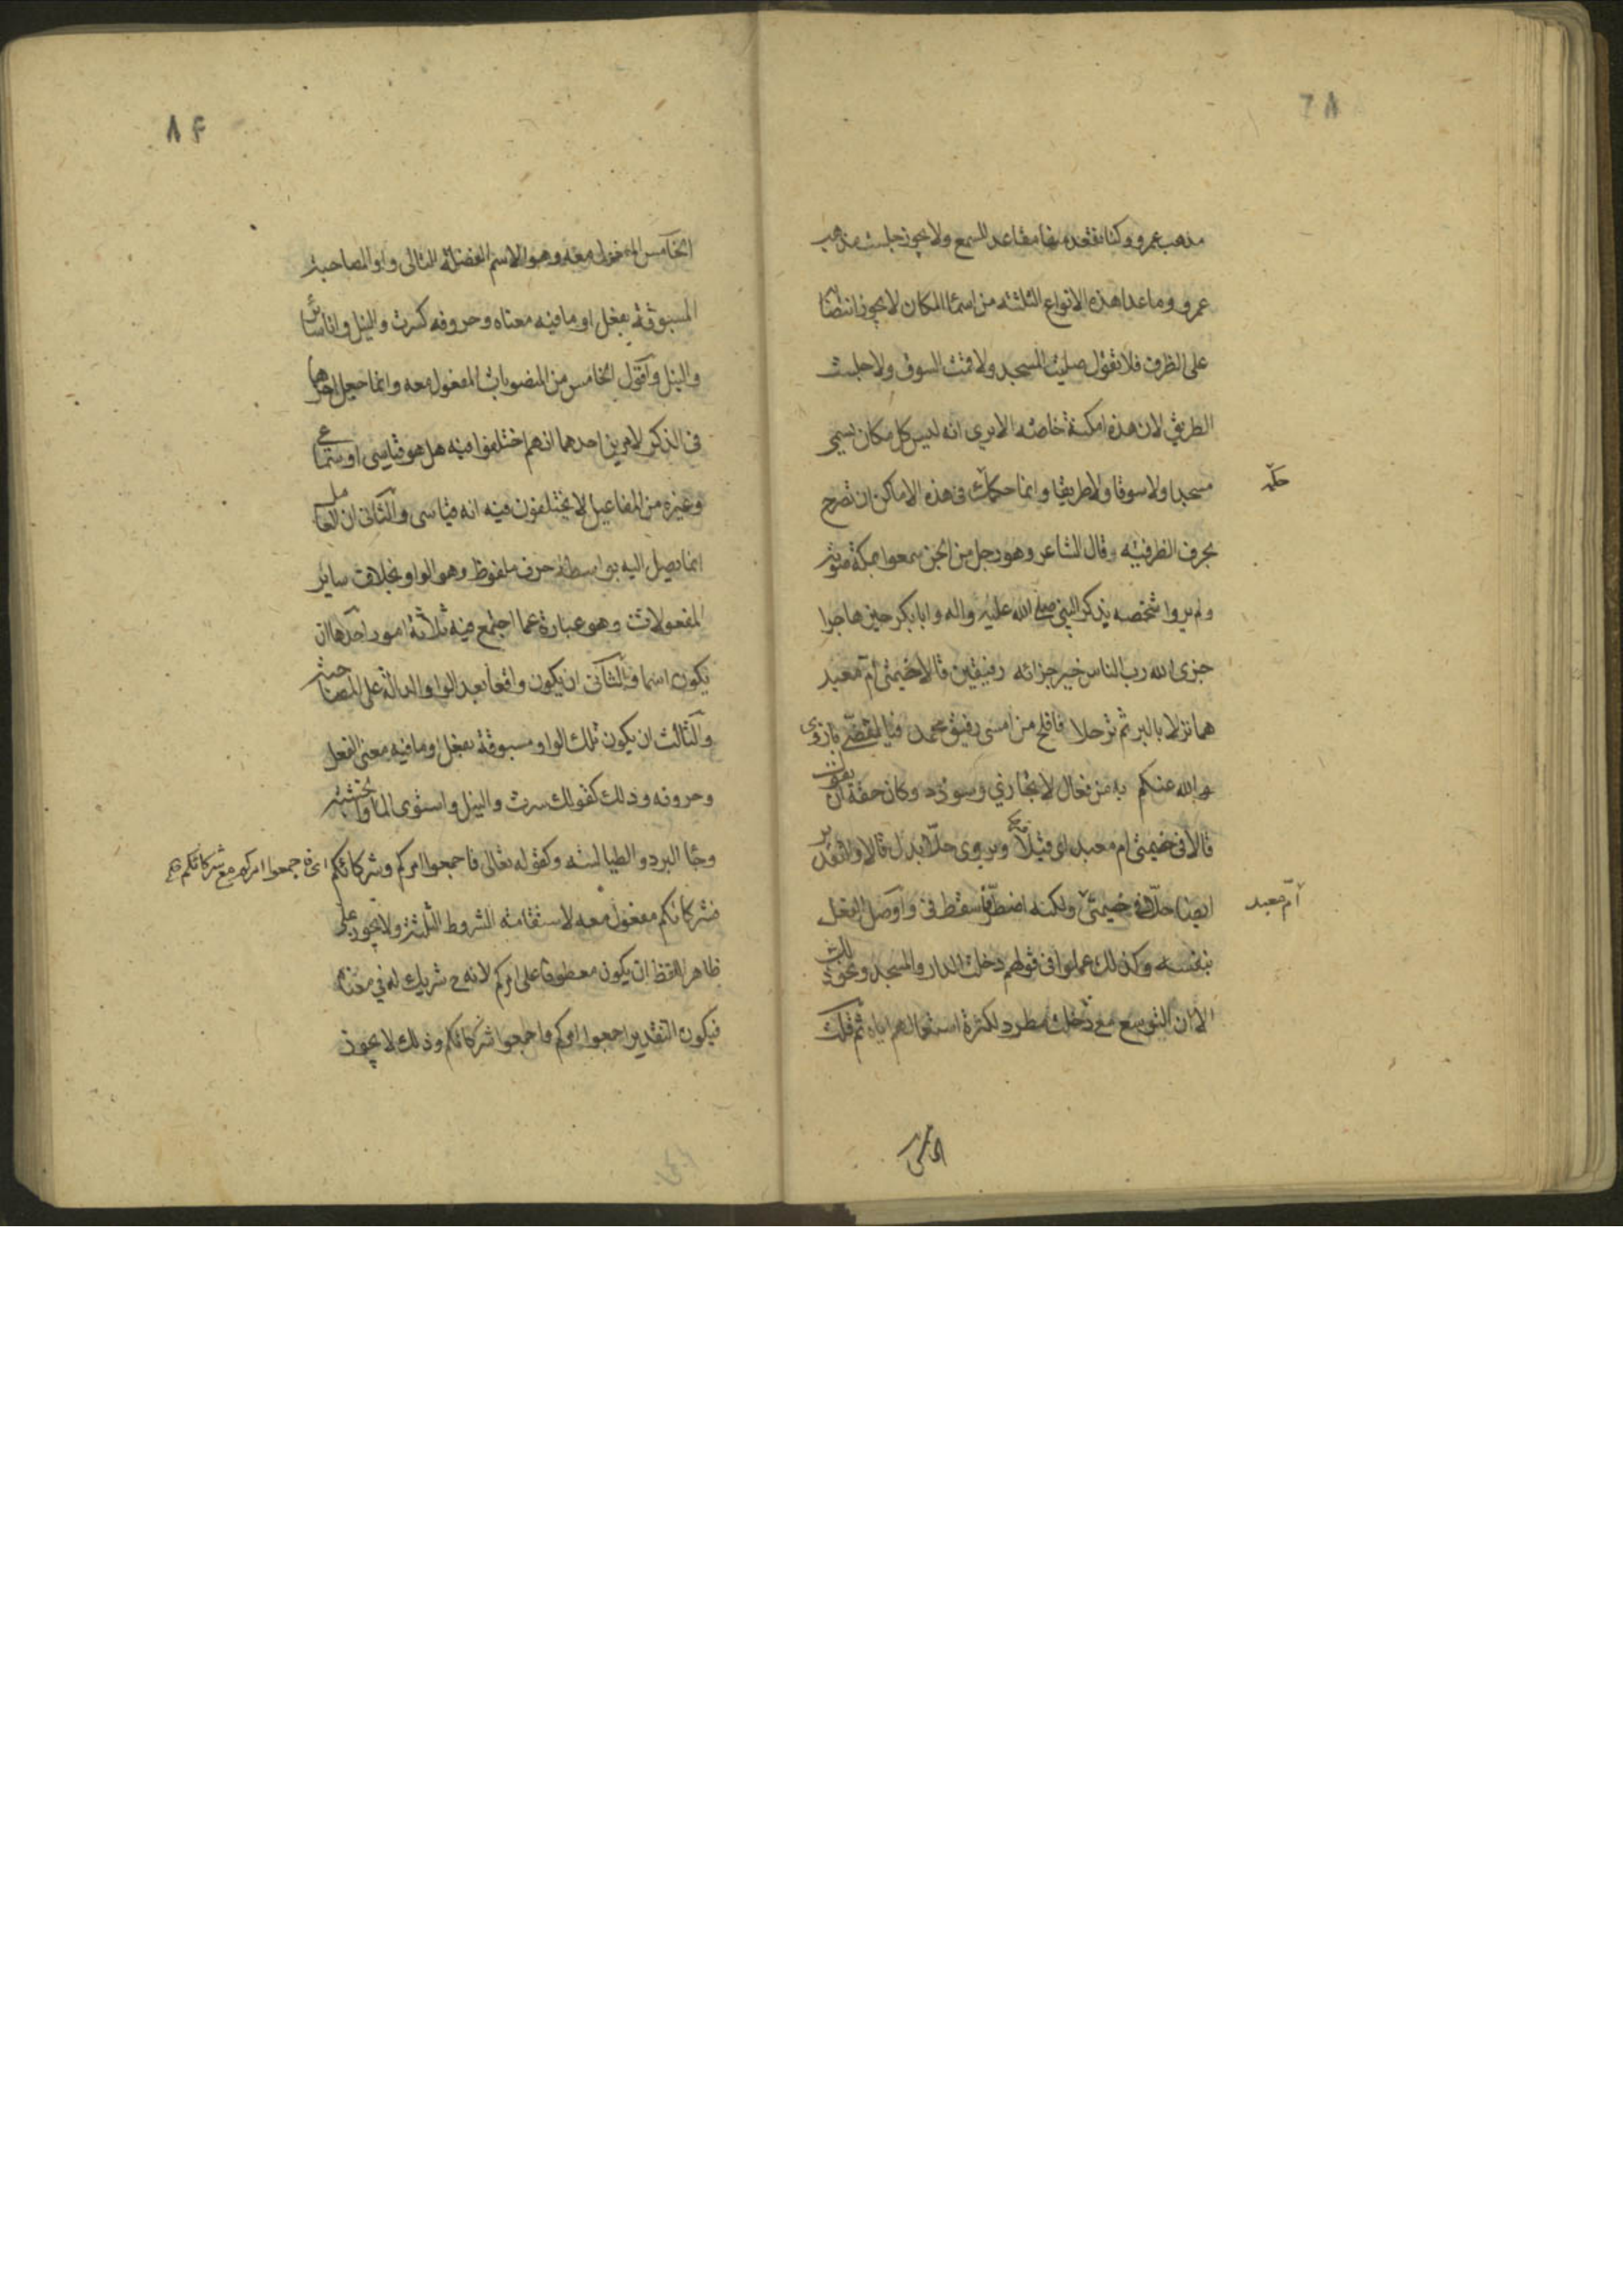 مذهب عمرو وكنا نقعد منها مقاعد للسمع ولا يجوز جلست مذهب
عمرو وما عدا هذه الانواع الثلثة من اسما المكان لا يجوز انتصابه
على الظرف فلا تقول صليت المسجد ولا قمت السوق ولا جلست
الطريق لان هذه امكنة خاصة الا يرى انه ليس كل مكان يسمى
مسجدا ولا سوقا ولا طريقا وانما حكمك فى هذه الاماكن ان تصرح
بحرف الظرفية وقال الشاعر وهو رجل من الجن سمعوا بمكة صوته
ولم يروا شخصه يذكر النبي صلى الله عليه واله وابا بكر حين هاجرا
جزى الله رب الناس خير جزائه رفيقين قالا خيمتى ام معبد
هما نزلا بالبر ثم ترحلا فافلح من امسى رفيق محمد فيا لقصى ما زوى
الله عنكم به من فعال لا يجازى وسودد وكان حقه ان يقول
قالا فى خيمتى ام معبد اى قيلا ويروى حلا بدل قالا والتقدير
ايضا حلا فى خيمتى ولكنه اضطر فاسقط فى واوصل الفعل
بنفسه وكذلك عملوا فى قولهم دخلت الدار والمسجد ونحو ذلك
الا ان التوسع مع دخلت مطرد لكثرة استعمالهم اياه ثم قلت
حلّ
امّ معبد
الخامس
الخامس المفعول معه وهو الاسم الفضلة التالى واو المصاحبة
المسبوقة بفعل او ما فيه معناه وحروفه كسرت والنيل وانا سائر
والنيل واقول الخامس من المنصوبات المفعول معه وانما جعل اخرها
فى الذكر لامرين احدهما انهم اختلفوا فيه هل هو قياسى او سماعى
وغيره من المفاعيل لا يختلفون فيه انه قياسى والثانى ان العامل
انما يصل اليه بواسطة حرف ملفوظ وهو الواو بخلاف ساير
المفعولات وهو عبارة عما اجتمع فيه ثلاثة امور احدها ان
يكون اسما والثانى ان يكون واقعا بعد الواو الدالة على المصاحبة
والثالث ان يكون تلك الواو مسبوقة بفعل او ما فيه معنى الفعل
وحروفه وذلك كقولك سرت والنيل واستوى الما والخشبة
وجا البرد والطيالسة وكقوله تعالى فاجمعوا امركم وشركائكم اى فاجمعوا امركم مع شركائكم
فشركائكم مفعول معه لاستقامته الشروط الثلثة ولا يجوز على
ظاهر اللفظ ان يكون معطوفا على امركم لانه ح شريك له فى معناه
فيكون التقدير اجمعوا امركم واجمعوا شركائكم وذلك لا يجوز